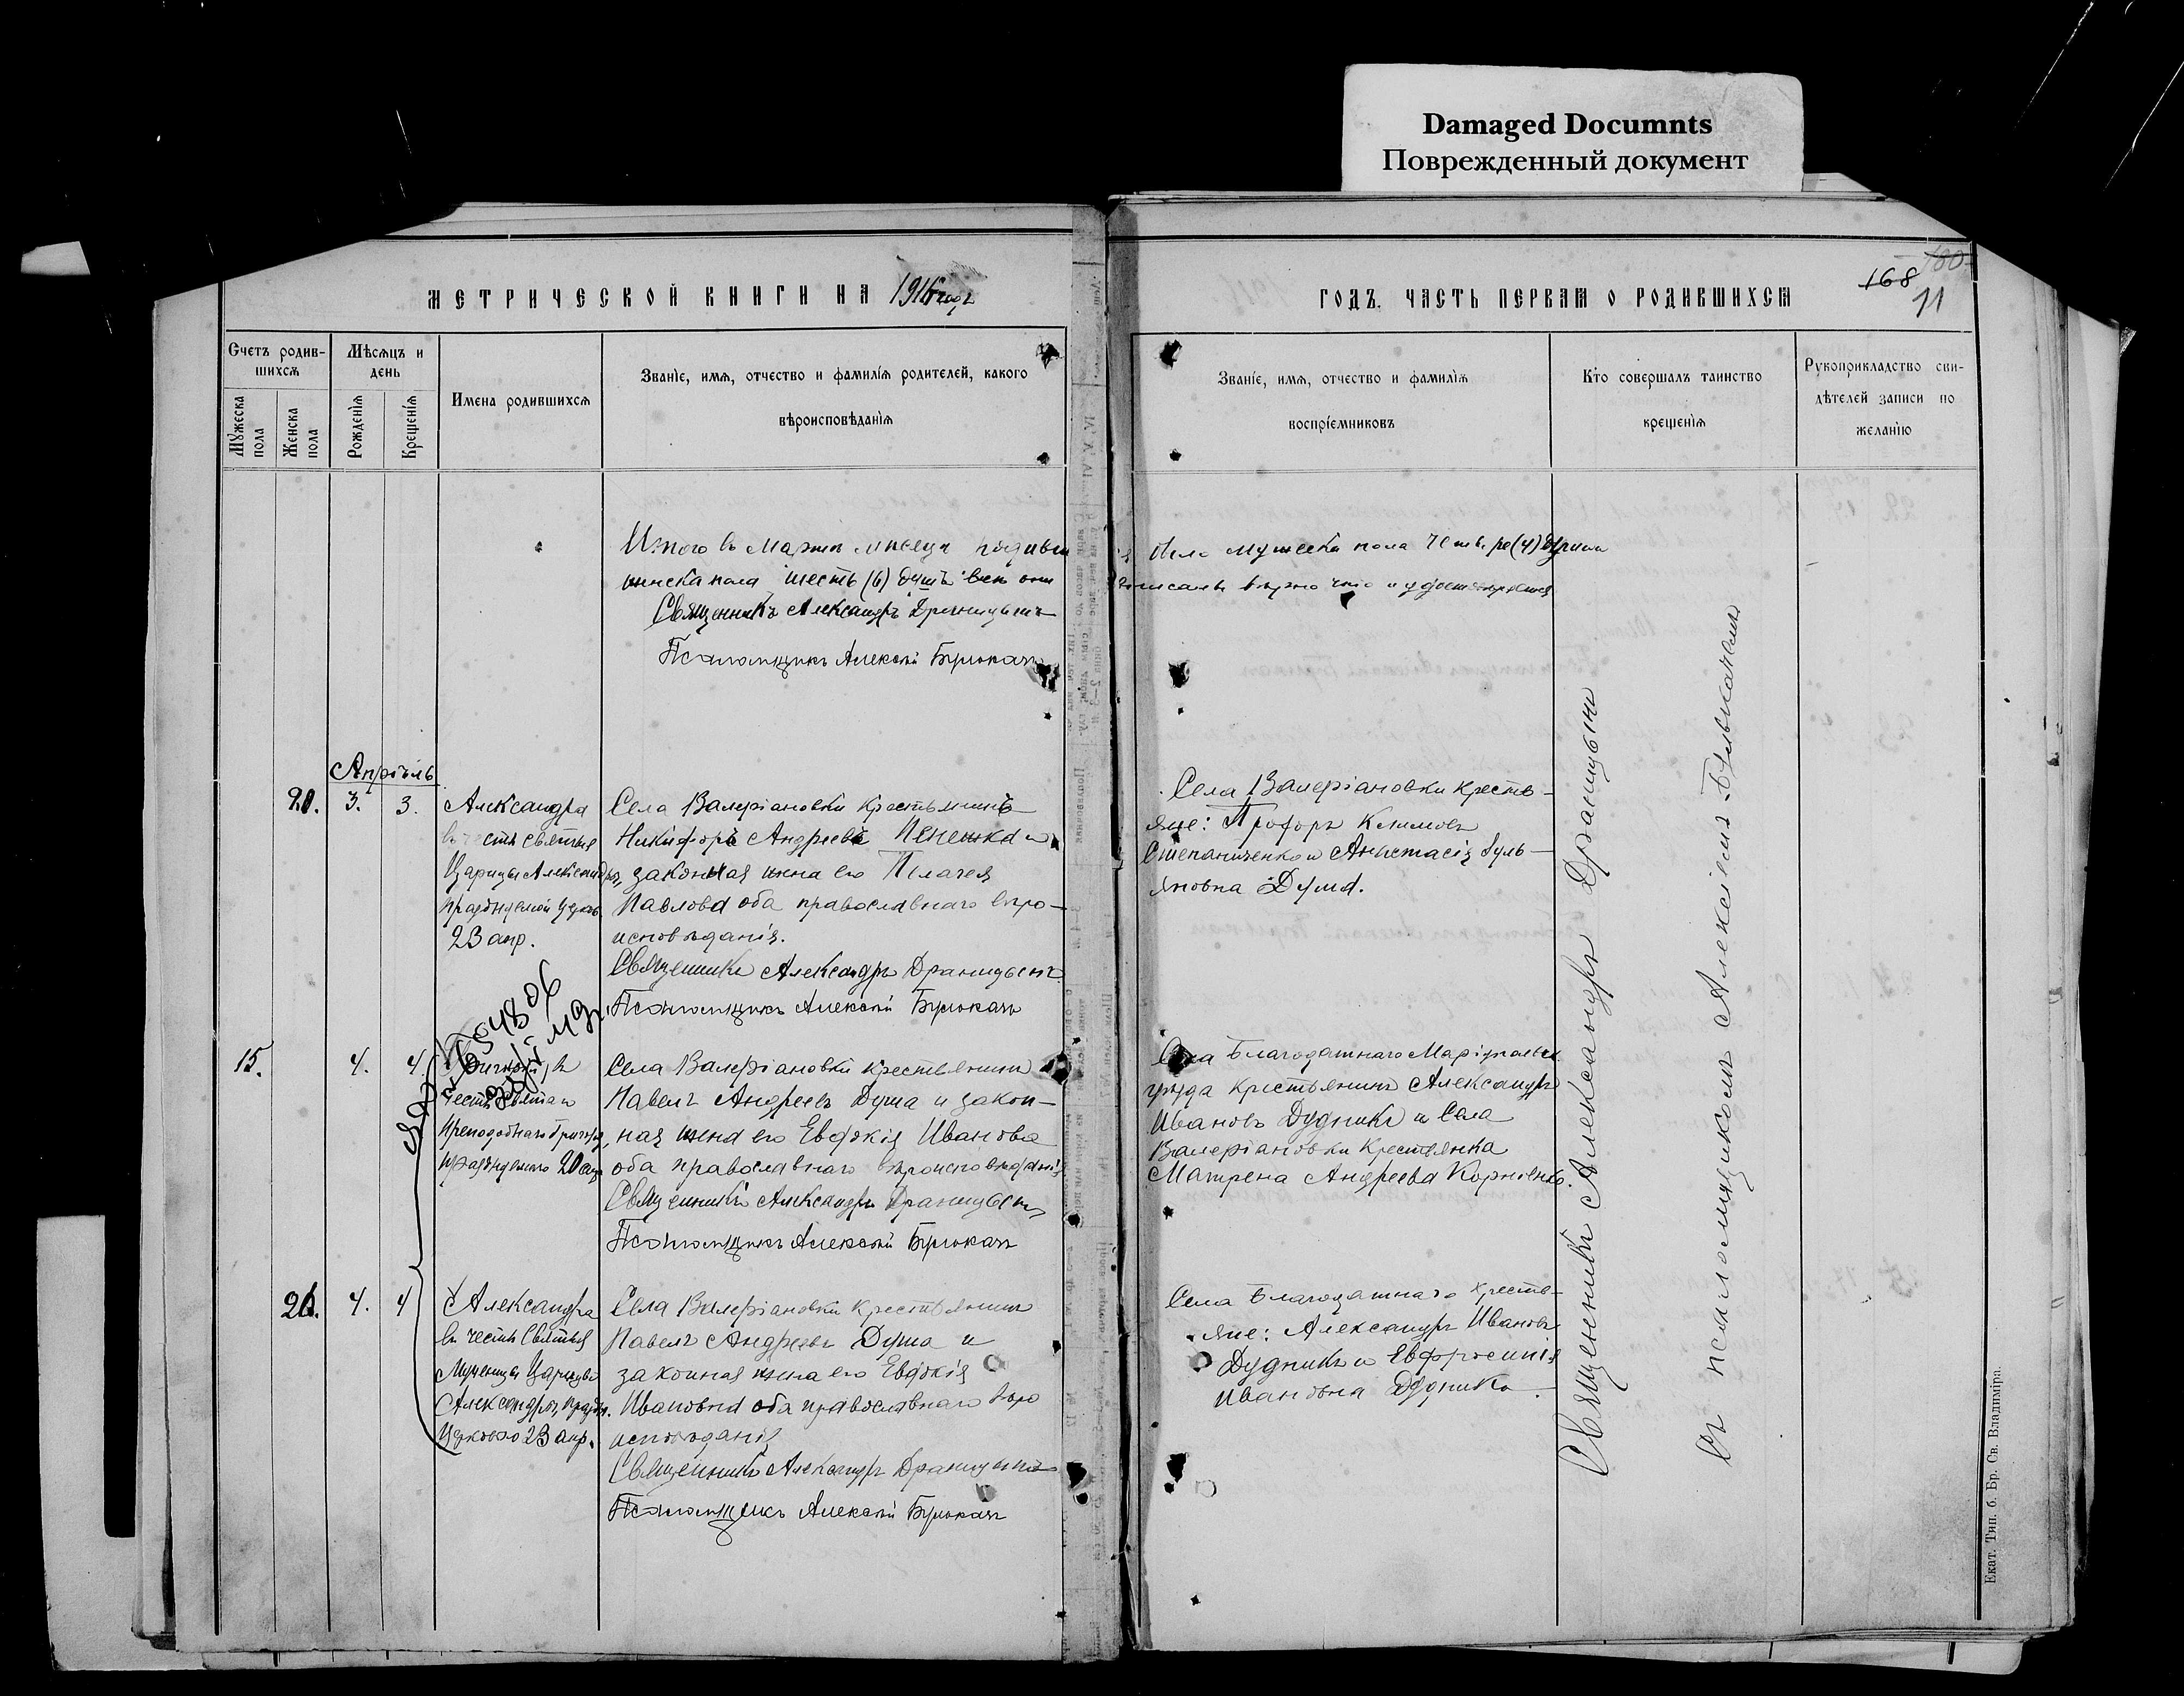 Damaged Documnts
Поврежденный документ
МЕТРИЧЕСКОЙ КНИГИ НА 1916 годъ
ГОДЪ. ЧАСТЬ ПЕРВАЯ О РОДИВШИХСЯ
168
180
11
Счетъ родив-
шихся
Мужеска пола
Женска пола
Мѣсяцъ и
день
Рожденія
Крещенія
Имена родившихся
Званіе, имя, отчество и фамилія родителей, какого
вѣроисповѣданія
Званіе, имя, отчество и фамилія
воспріемниковъ
Кто совершалъ таинство
крещенія
Рукоприкладство сви-
дѣтелей записи по
желанію
Итого въ Мартѣ мѣсяцѣ родивши
мужеска пола четыре (4)
женска пола шесть (6) душъ всѣ они
записаны вѣрно что и удостовѣряемъ
Священникъ Александръ Драницынъ
Псаломщикъ Алексѣй Бѣлокачъ
Апрѣль
20.
3.
3.
Александра
въ честь святыя
Царицы Александры,
празднуемой церков.
23 апр.
Села Валеріановки крестьянинъ
Никифоръ Андреевъ Пенешка и
законная жена его Пелагея
Павлова оба православнаго вѣро-
исповѣданія.
Священникъ Александръ Драницынъ
Псаломщикъ Алексѣй Бѣлокачъ
Села Валеріановки кресть-
яне: Прохоръ Климовъ
Степаниченко и Анастасія Уль-
яновна Дума.
15.
4.
4.
Григорій, въ
честь святаго
Преподобнаго Григорія,
празднуемаго 20 апр
Села Валеріановки крестьянинъ
Павелъ Андреевъ Дума и закон-
ная жена его Евдокія Иванова
оба православнаго вѣроисповѣданія
Священникъ Александръ Драницынъ
Псаломщикъ Алексѣй Бѣлокачъ
Села Благодатнаго Маріупольск.
уѣзда крестьянинъ Александръ
Ивановъ Дудникъ и села
Валеріановки крестьянка
Матрена Андреева Корніенко.
21.
4.
4
Александра
въ честь Святыя
Мученицы Царицы
Александры, праздн.
Церковью 23 апр.
Села Валеріановки крестьянинъ
Павелъ Андреевъ Дума и
законная жена его Евдокія
Ивановна оба православнаго вѣро
исповѣданія
Священникъ Александръ Драницынъ
Псаломщикъ Алексѣй Бѣлокачъ
Села Благодатнаго кресть-
яне: Александръ Ивановъ
Дудникъ и Евфросинія
Ивановна Дудникъ.
Священникъ Александръ Драницынъ
съ псаломщикомъ Алексѣемъ Бѣлокачемъ
Екат. Тип. б. Бр. Св. Владиміра.